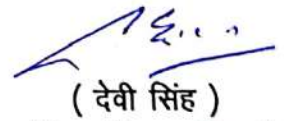 ( देवी सिंह )